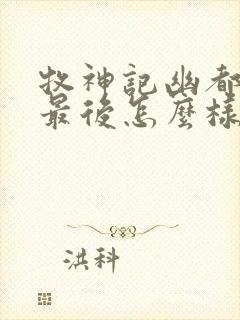 牧神記幽都
最後怎麼樣
洪科